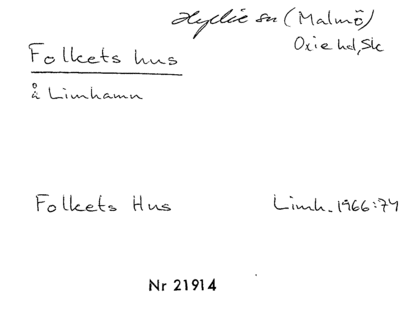 Hyllie sn (Malmö)
Oxie hd, Sk
Folkets hus
å Limhamn
Folkets Hus Limh. 1966:74
Nr 21914